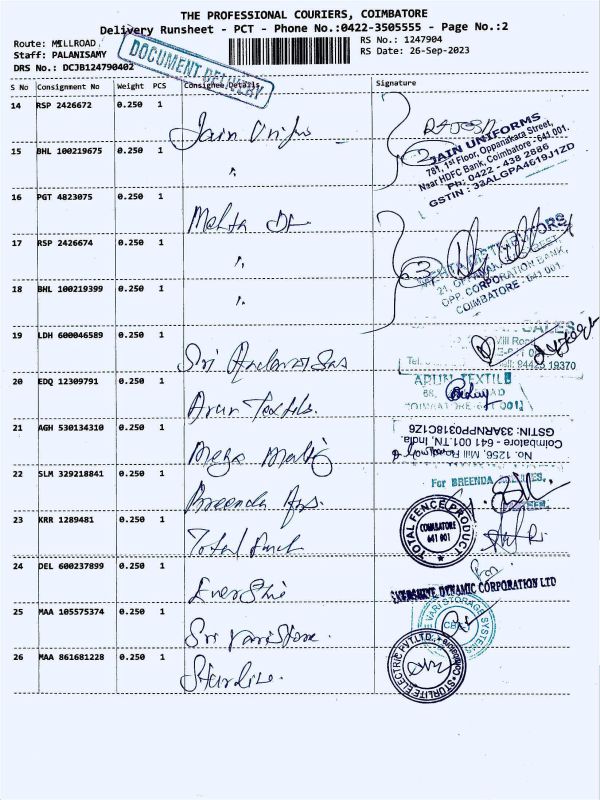 THE PROFESSIONAL COURIERS, COIMBATORE
Delivery Runsheet - PCT - Phone No.:0422-3505555 - Page No.:2
Route: MILLROAD
Staff: PALANISAMY
DRS No.: DCJB124790402
DOCUMENT DELIVERY
RS No.: 1247904
RS Date: 26-Sep-2023
S No Consignment No Weight PCS Consignee Details Signature
14 RSP 2426672 0.250 1
Jain Unifs
RAJESH
JAIN UNIFORMS
781, 1st Floor, Oppanakara Street,
Near HDFC Bank, Coimbatore - 641 001.
Ph: 0422 - 438 2886
GSTIN : 33ALGPA4619J1ZD
15 BHL 100219675 0.250 1
"
3
16 PGT 4823075 0.250 1
Mehta
17 RSP 2426674 0.250 1
"
3
OPP. CORPORATION BANK,
COIMBATORE - 641 001.
18 BHL 100219399 0.250 1
"
19 LDH 600046589 0.250 1
Sri
SALES
Mill Road
Cell: 94425 19370
20 EDQ 12309791 0.250 1
Arun Textils.
ARUN TEXTILE
COIMBATORE-641 001
21 AGH 530134310 0.250 1
Mega
No. 1256, Mill Road,
Coimbatore - 641 001.TN, India.
GSTIN: 33ARNPP0318C1Z6
22 SLM 329218841 0.250 1
Breenda Aps.
For BREENDA
23 KRR 1289481 0.250 1
Total
TOTAL FENCE PRODUCT
COIMBATORE
641 001
24 DEL 600237899 0.250 1
Evershi
For
EVERSHINE DYNAMIC CORPORATION LTD
25 MAA 105575374 0.250 1
Sri Vari Store.
VARI STORAGE SYSTEMS
CBE
26 MAA 861681228 0.250 1
Starlite.
STORLITE ELECTRIC PVT.LTD.
Coimbatore